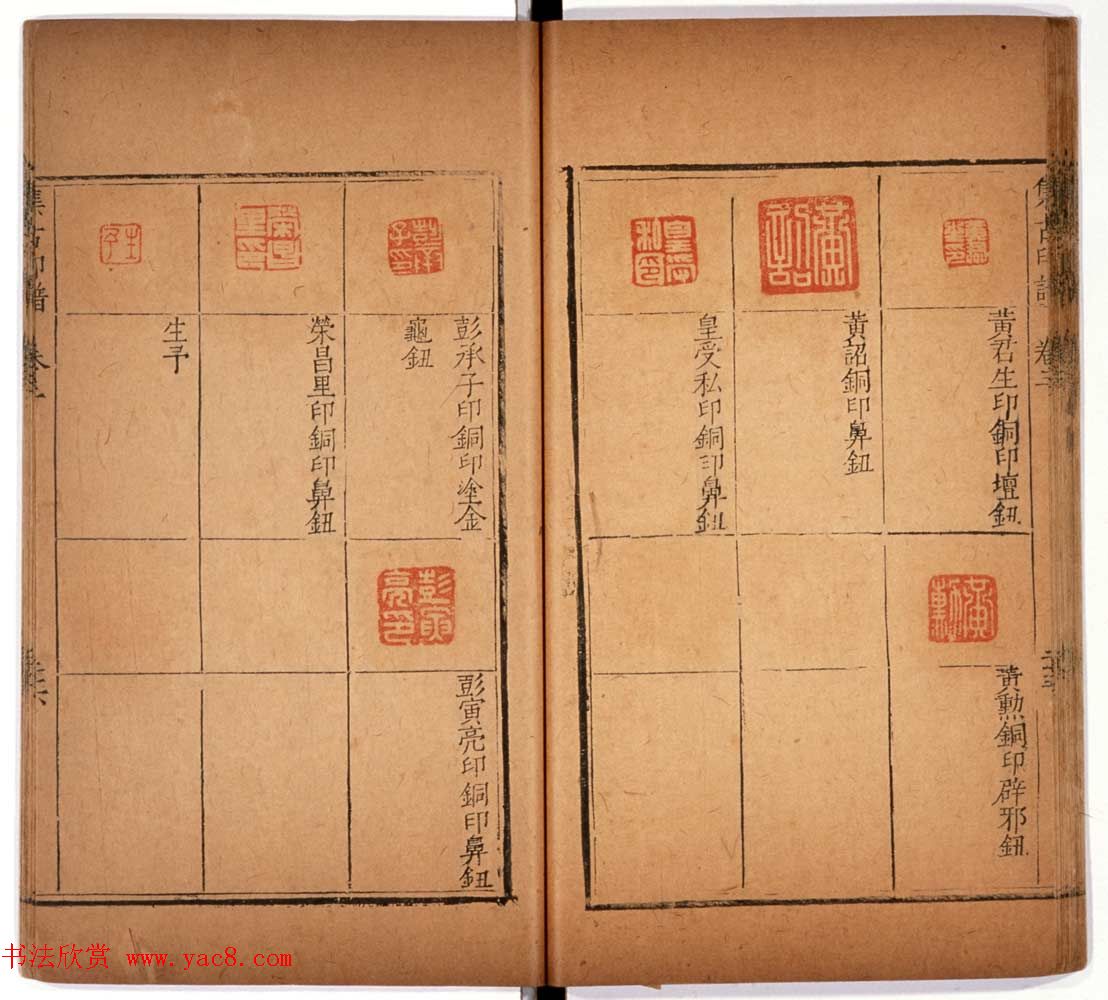 黃君生印銅印壇鈕
黃勲銅印辟邪鈕
黃詔銅印鼻鈕
皇受私印銅印鼻鈕
彭承子印銅印塗金
龜鈕
彭寅亮印銅印鼻鈕
榮昌里印銅印鼻鈕
生子
集古印譜
书法欣赏 www.yac8.com